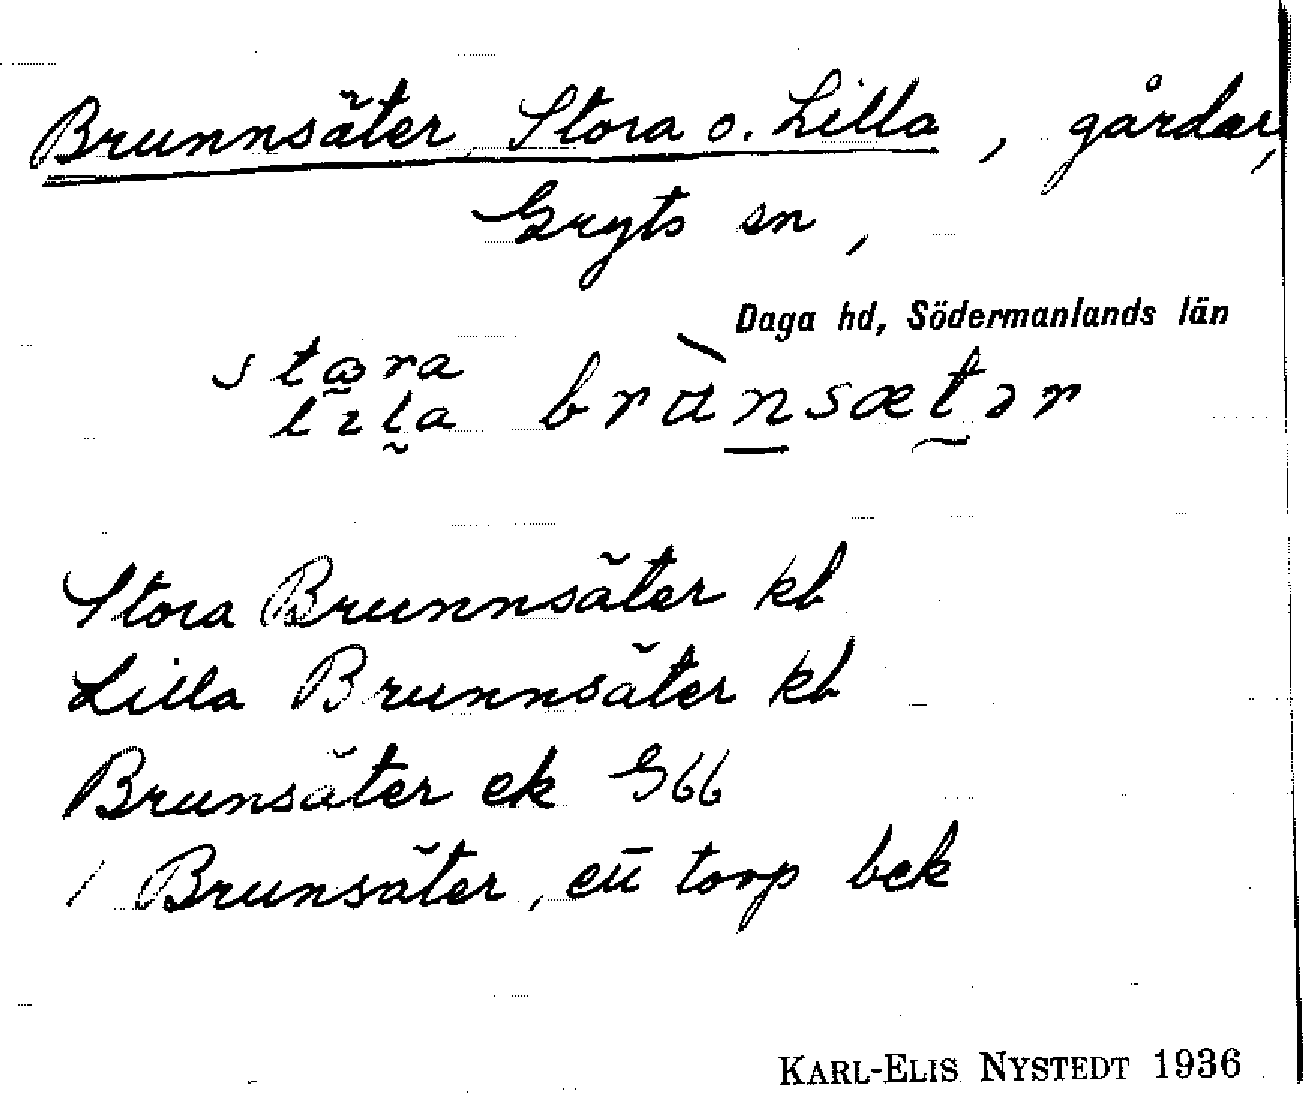 Brunnsäter, Stora o. Lilla, gårdar,
Gryts sn,
Daga hd, Södermanlands län
Stora Brunnsäter kb
Lilla Brunnsäter kb
Brunsäter ek G66
/ Brunsäter, ett torp bek
KARL-ELIS NYSTEDT 1936